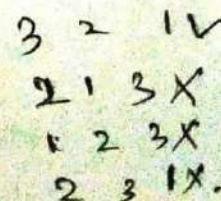 3 2 1✓
2 1 3 X
1 2 3 X
2 3 1 X.